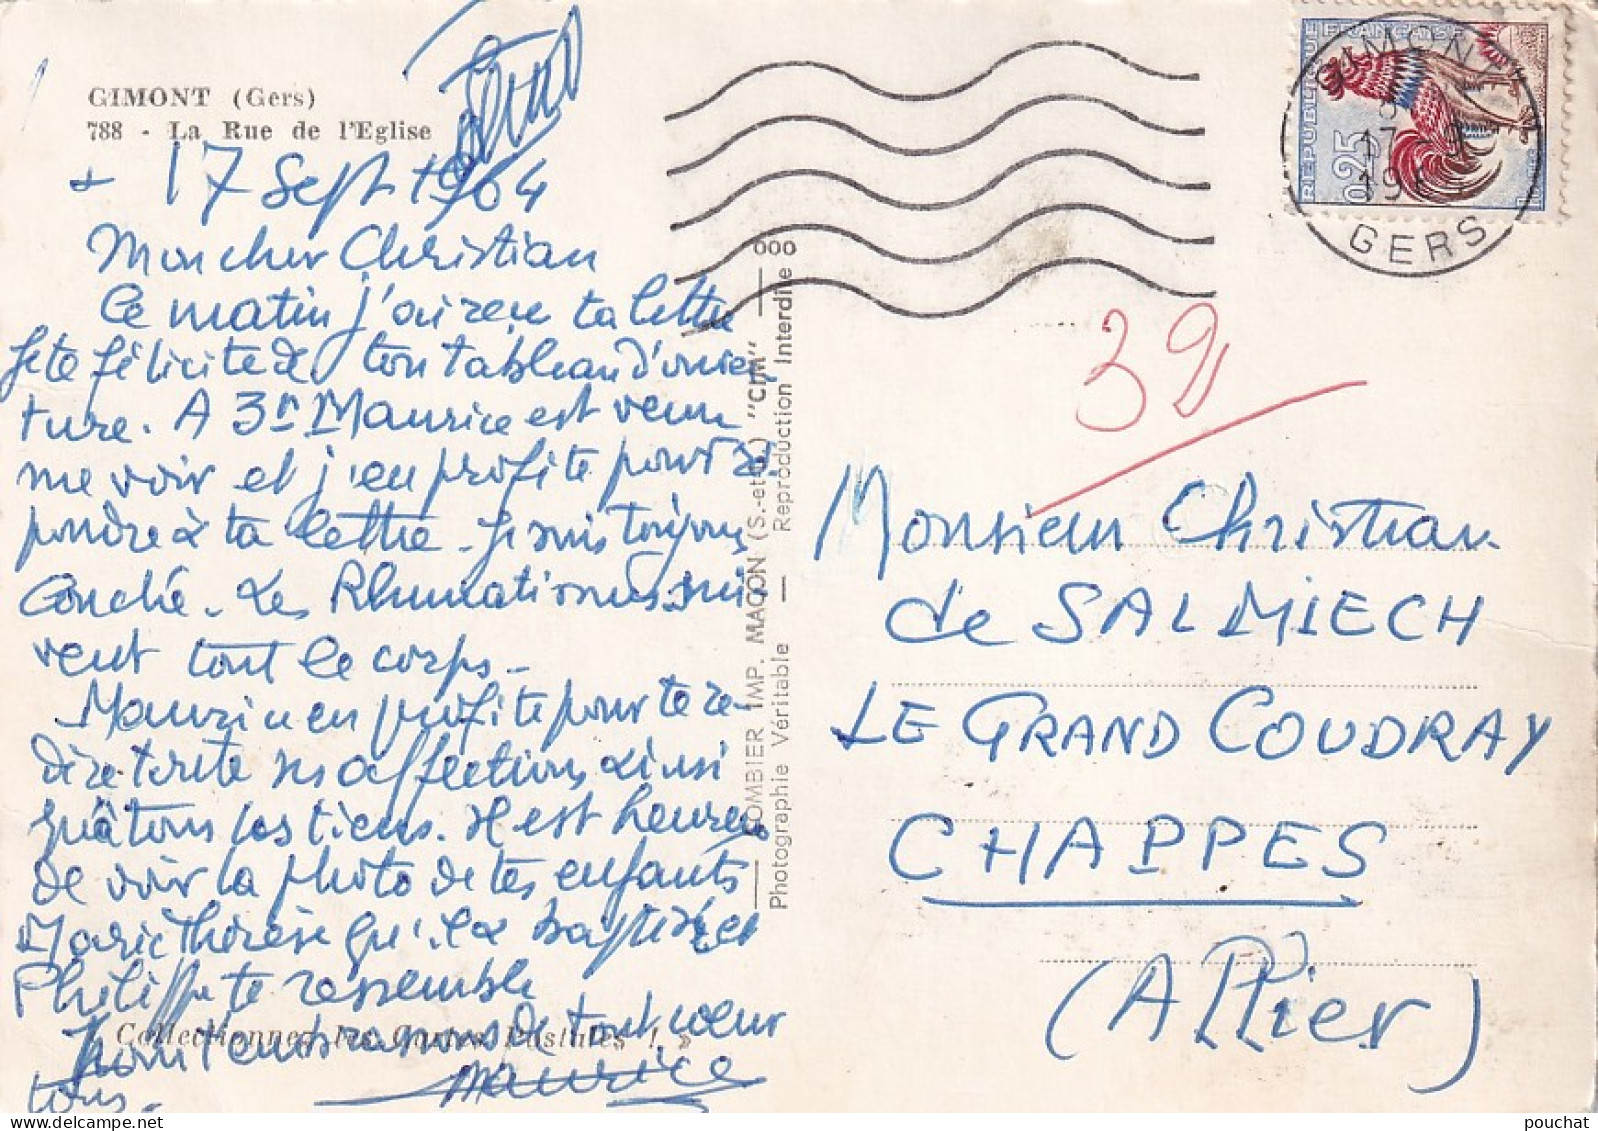 GIMONT (Gers)
788 - La Rue de l'Eglise
+ 17 Sept 1964
Mon cher Christian
Ce matin j'ai reçu ta lettre
je te félicite de ton tableau d'ouver
ture. A 3h Maurice est venu
me voir et j'en profite pour ré
pondre à ta lettre. Je suis toujours
couché. Les Rhumatismes sui
vent tout le corps.
Maurice en profite pour te re-
dire toute ses affections ainsi
qu'à tous les tiens. Il est heureux
de voir la photo de tes enfants
Marie Thérèse qu'il a baptisée et
Philippe te ressemble
vous embrassons de tout coeur
tous.
Maurice
Collectionnez les Cartes Postales !
COMBIER IMP. MACON (S.-et-L.) "CIM"
Photographie Véritable — Reproduction Interdite
ooo
REPUBLIQUE FRANÇAISE
0,25
GIMONT
17 - 9
GERS
32
Monsieur Christian
de SALMIECH
LE GRAND COUDRAY
CHAPPES
(Allier)
pouchat